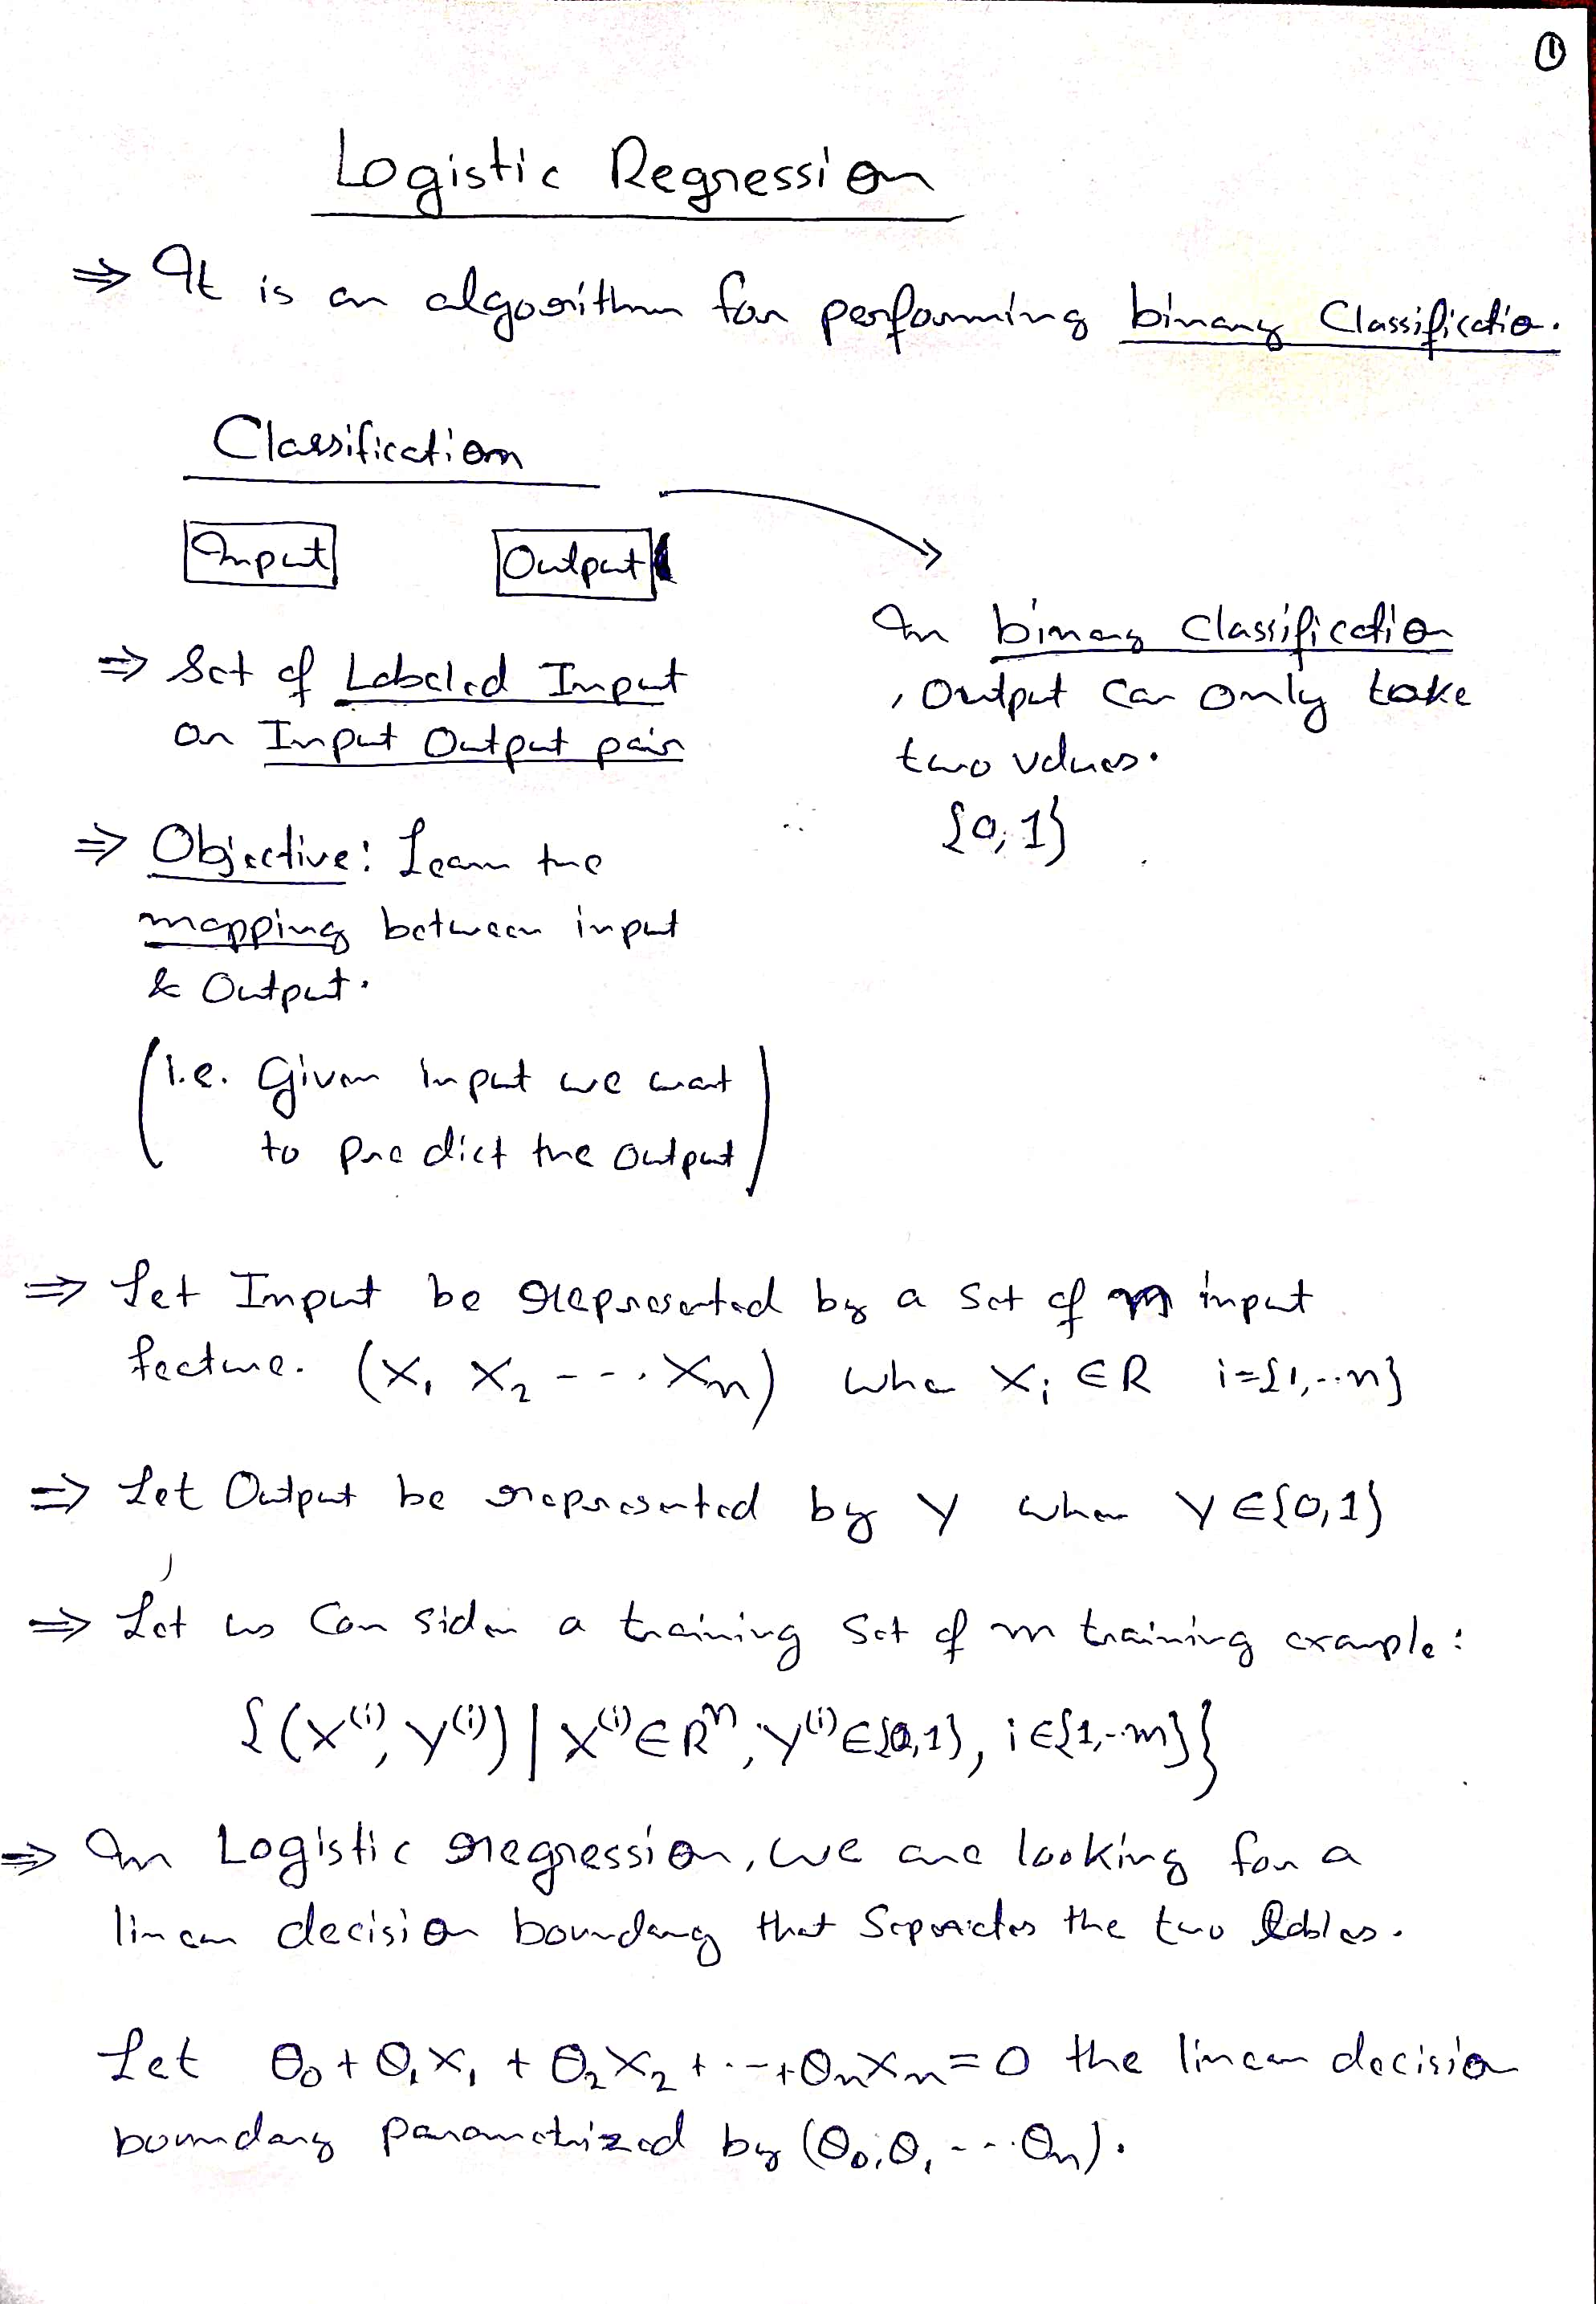 ①
Logistic Regression
⇒ It is an algorithm for performing binary Classificatio.
Classification
Input Output
⇒ Set of Labeled Input
or Input Output pair
In binary Classification
, Output can only take
two values.
{0, 1}
⇒ Objective: Learn the
mapping between input
& Output.
(i.e. Given input we want
to predict the output)
⇒ Let Input be represented by a set of n input
feature. (X₁ X₂ - - . Xₙ) where Xᵢ ∈ R i={1,..n}
⇒ Let Output be represented by Y where Y ∈{0,1}
⇒ Let us Consider a training Set of m training example:
{(X⁽ⁱ⁾, Y⁽ⁱ⁾) | X⁽ⁱ⁾ ∈ Rⁿ, Y⁽ⁱ⁾ ∈{0,1}, i ∈{1,..m}}
⇒ In Logistic regression, we are looking for a
linear decision boundary that Separates the two lables.
Let θ₀ + θ₁X₁ + θ₂X₂ + .. + θₙXₙ = 0 the linear decision
boundary parametrized by (θ₀, θ₁ - - . θₙ).